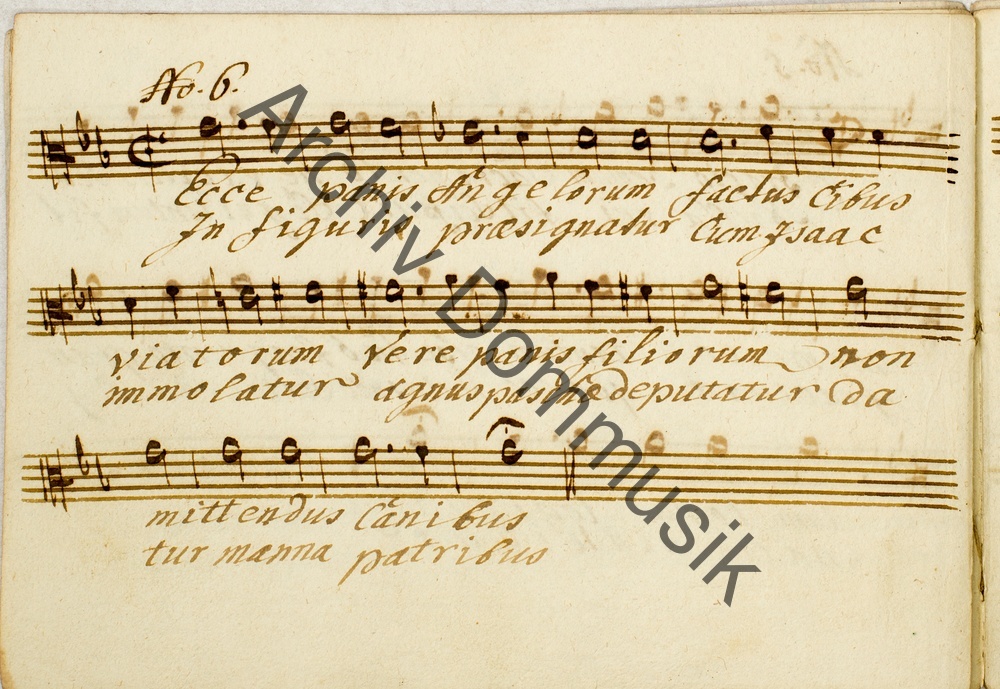 No. 6.
Ecce panis Angelorum factus Cibus
In figuris præsignatur Cum Isaac
viatorum vere panis filiorum non
immolatur agnus paschæ deputatur da
mittendus Canibus
tur manna patribus
Archiv Dommusik